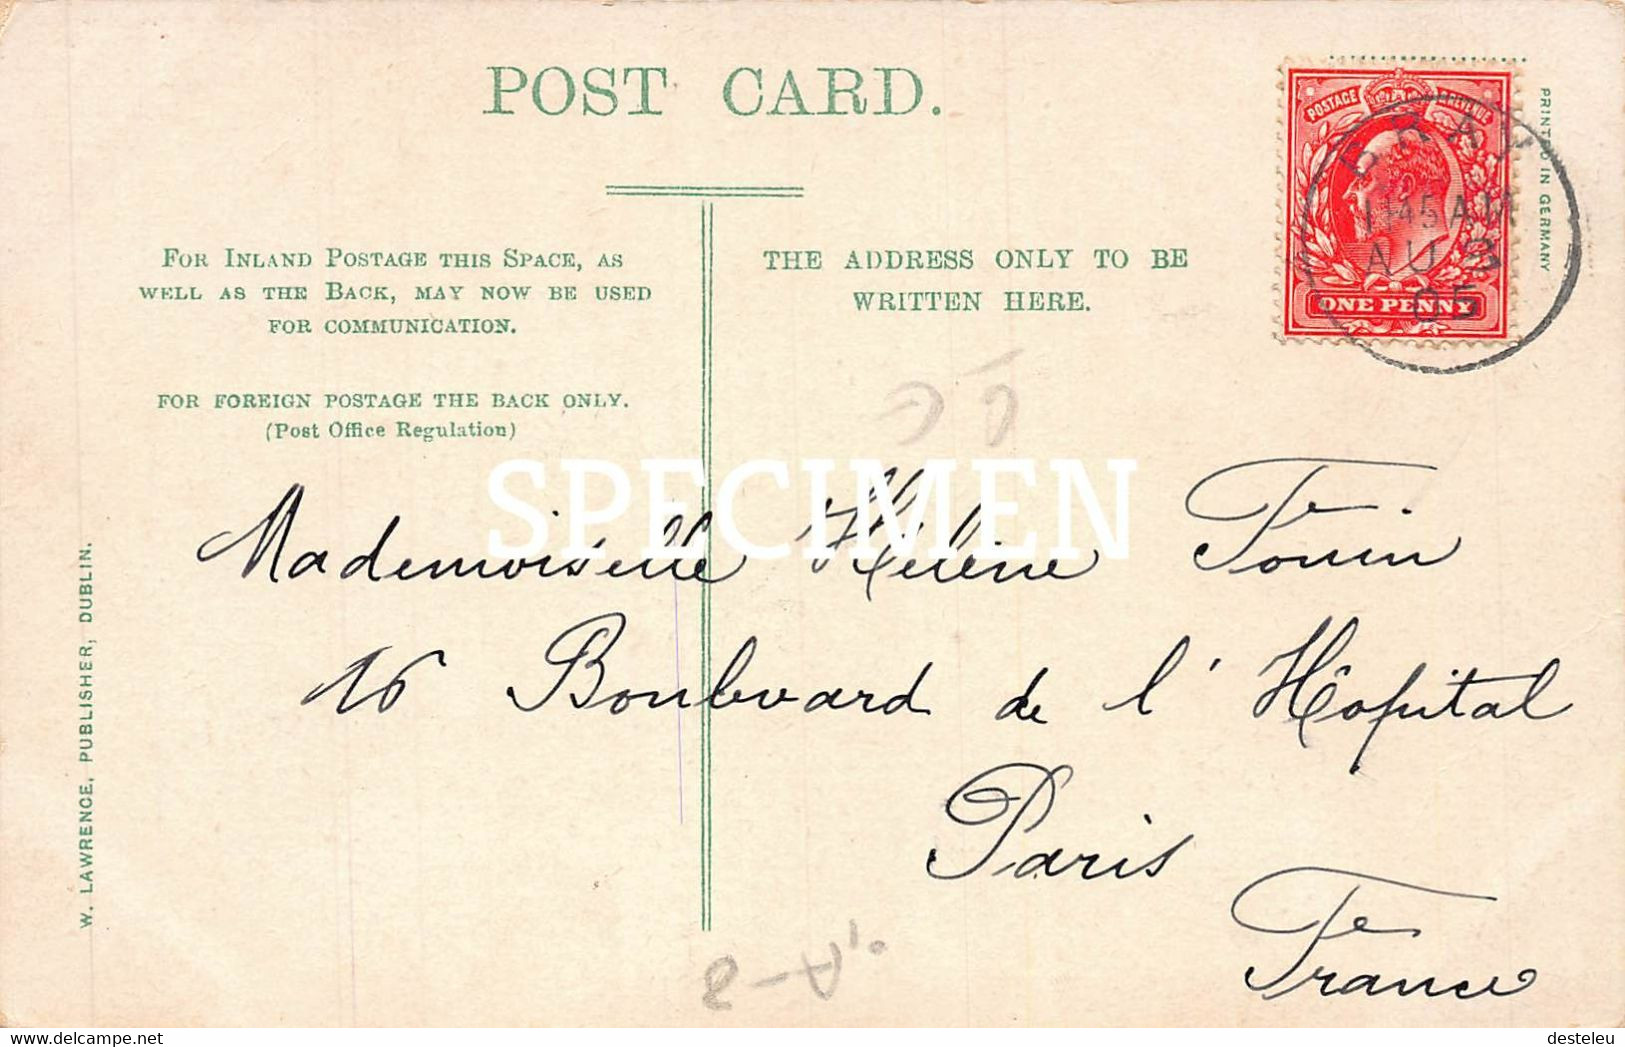 POST CARD.
FOR INLAND POSTAGE THIS SPACE, AS
WELL AS THE BACK, MAY NOW BE USED
FOR COMMUNICATION.
FOR FOREIGN POSTAGE THE BACK ONLY.
(Post Office Regulation)
THE ADDRESS ONLY TO BE
WRITTEN HERE.
POSTAGE REVENUE
ONE PENNY
BRAY
11 45 AM
AU
05
PRINTED IN GERMANY
W. LAWRENCE, PUBLISHER, DUBLIN.
SPECIMEN
Mademoiselle Hélène
16 Boulevard de l'Hôpital
Paris
France
delcampe.net
desteleu